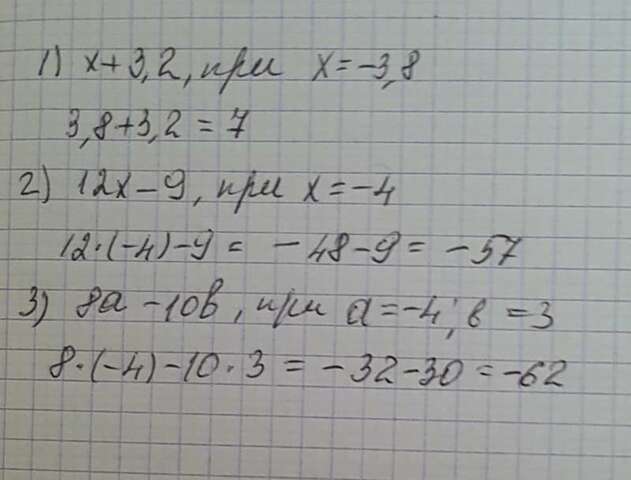 1) x+3,2, при x=-3,8
3,8+3,2=7
2) 12x-9, при x=-4
12·(-4)-9= -48-9= -57
3) 8a-10b, при a=-4; b=3
8·(-4)-10·3 = -32-30=-62